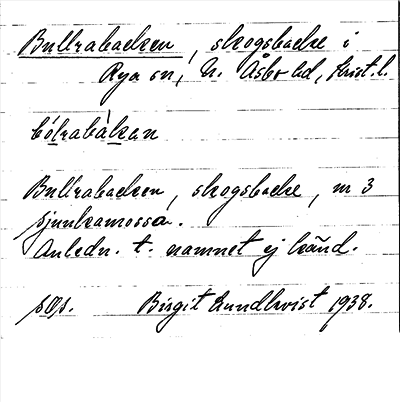 Bullrabacken, skogsbacke i
Rya sn, N. Åsbo hd, Krist. l.
bólrabàkan
Bullrabacken, skogsbacke, nr 3
Sjunkamossa.
Anledn. t. namnet ej känd.
Birgit Lundkvist 1938.